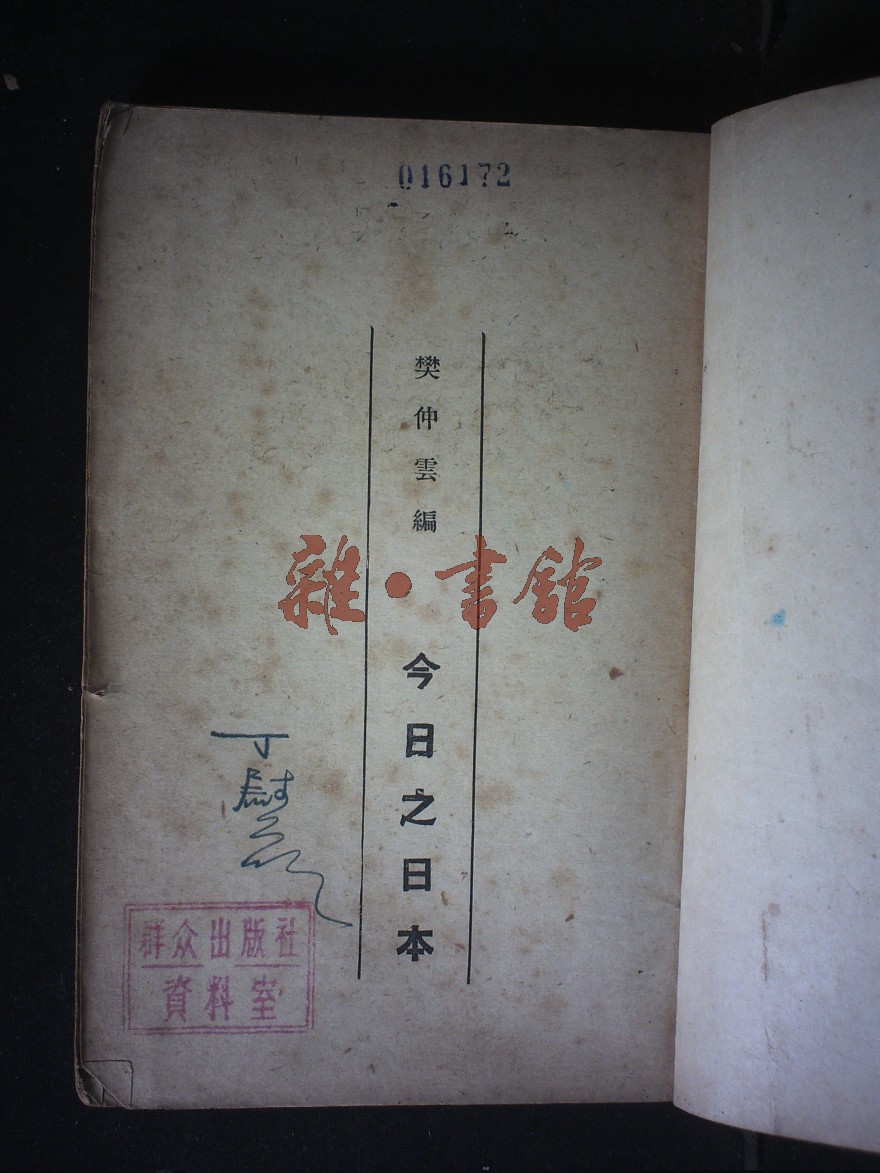 016172
樊仲雲編
雜·書館
今日之日本
丁慰
群众出版社
資料室